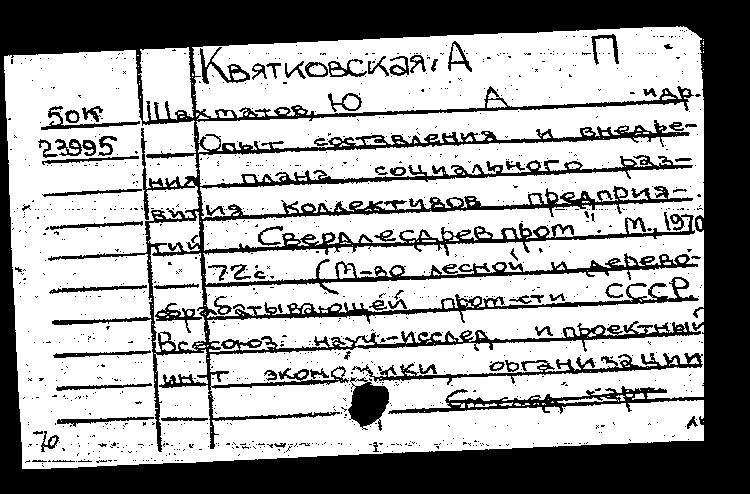 Квятковская, А П
50к Шахматов, Ю А и др.
23995 Опыт составления и внедре-
ния плана социального раз-
вития коллективов предприя-
тий „Свердлесдревпром". М., 1970
72 с. (М-во лесной и дерево-
обрабатывающей пром-сти СССР.
Всесоюз. науч.-исслед. и проектный
ин-т экономики, организации
См след. карт
70